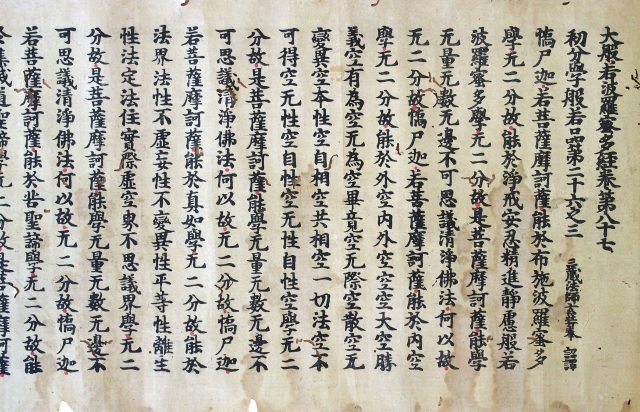 大般若波羅蜜多経巻第八十七
初分學般若品第二十六之三 三蔵法師玄奘奉 詔譯
憍尸迦若菩薩摩訶薩能於布施波羅蜜多
學无二分故能於淨戒安忍精進靜慮般若
波羅蜜多學无二分故是菩薩摩訶薩能學
无量无數无邊不可思議清淨佛法何以故
无二分故憍尸迦若菩薩摩訶薩能於內空
學无二分故能於外空內外空空空大空勝
義空有為空无為空畢竟空无際空散空无
變異空本性空自相空共相空一切法空不
可得空无性空自性空无性自性空學无二
分故是菩薩摩訶薩能學无量无數无邊不
可思議清淨佛法何以故无二分故憍尸迦
若菩薩摩訶薩能於真如學无二分故能於
法界法性不虛妄性不變異性平等性離生
性法定法住實際虛空界不思議界學无二
分故是菩薩摩訶薩能學无量无數无邊不
可思議清淨佛法何以故无二分故憍尸迦
若菩薩摩訶薩能於苦聖諦學无二分故能
於集滅道聖諦學无二分故是菩薩摩訶薩